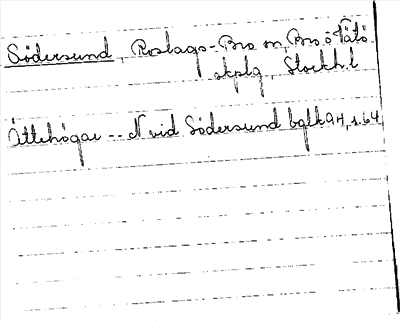 Södersund, Roslags-Bro sn, Bro o Vätö
skplg, Stockh. l
Ättehögar -- N vid Södersund bglk 94, s. 64